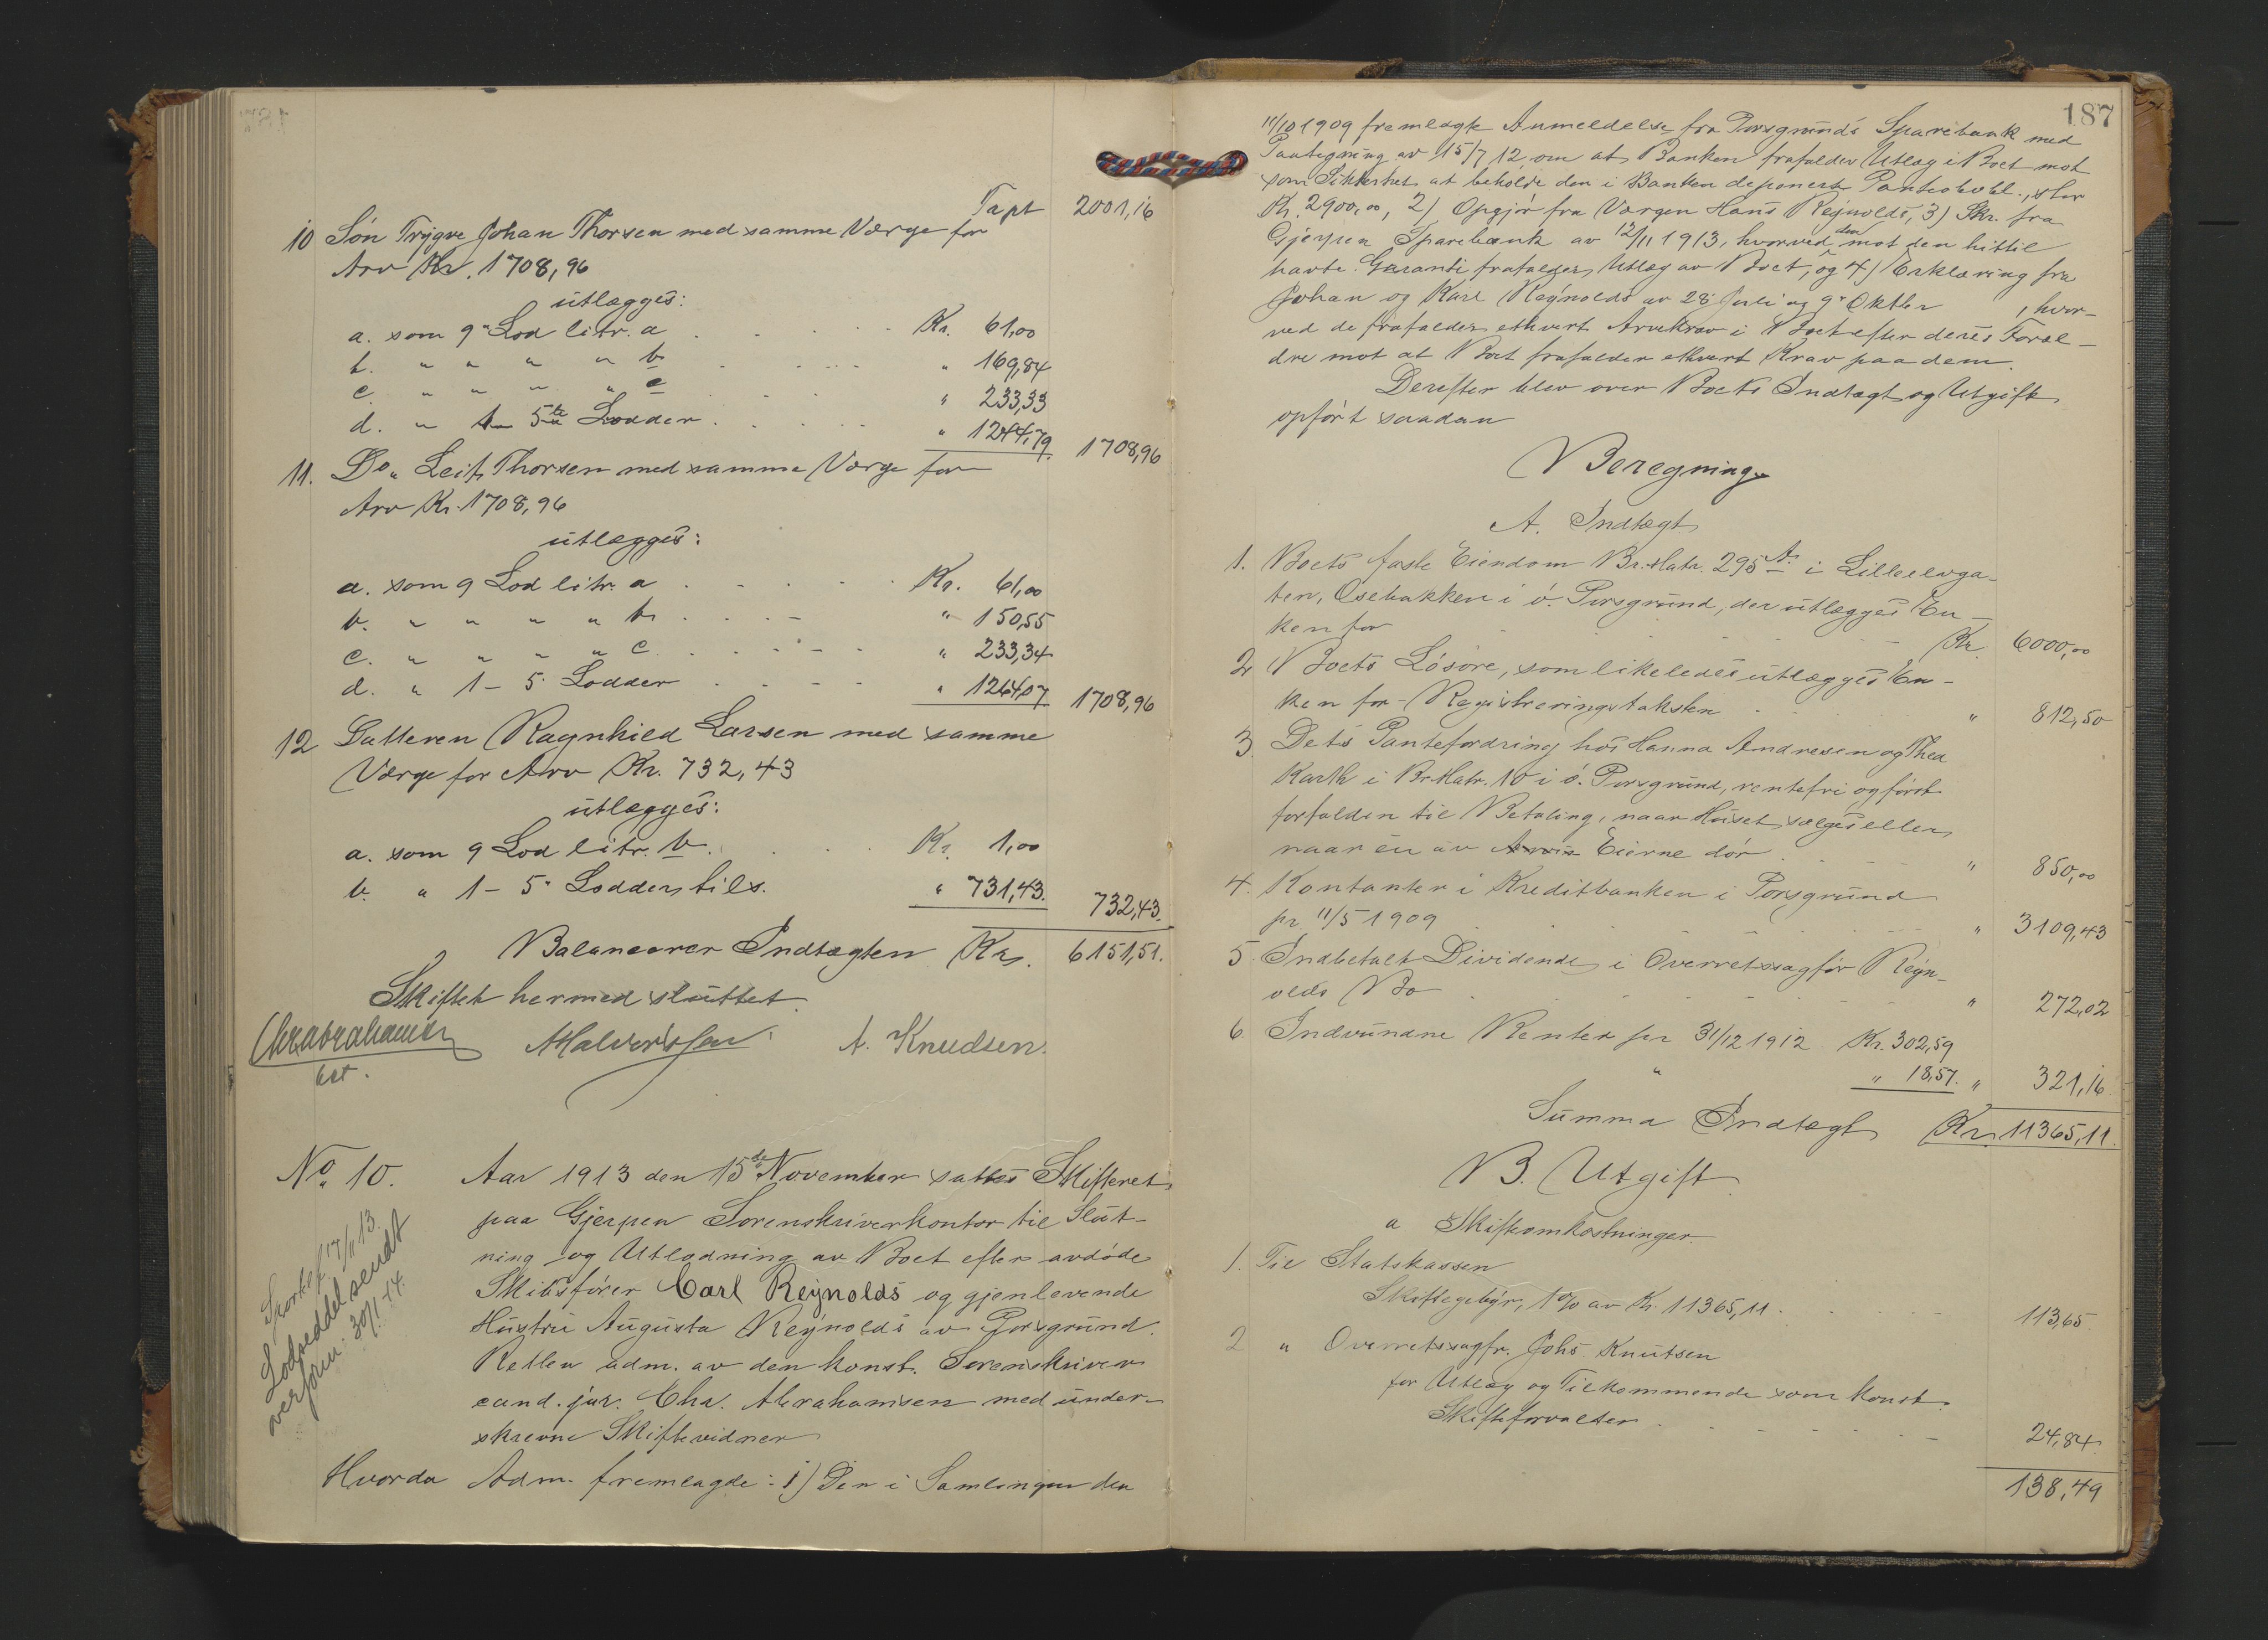 Trpt 2001,16
10 Søn Trygve Johan Thorsen med samme Værge for
Arv Kr. 1708,96
utlægges:
a. som 9" Lod litr. a Kr. 61,00
b. " " " " b " 169,84
c. " " " " c " 233,33
d. " 1- 5te Lodder " 1244,79. 1708,96
11. Do" Leif Thorsen med samme Værge for
Arv Kr. 1708,96
utlægges:
a. som 9 Lod litr. a Kr. 61,00
b. " " " " b " 150,55
c. " " " " c " 233,34
d. " 1- 5. Lodder " 1264,07 1708,96
12 Datteren Ragnhild Larsen med samme
Værge for Arv Kr. 732,43
utlægges:
a. som 9 Lod litr. b. Kr. 1,00
b. " 1- 5" Lodder tils. " 731,43. 732,43.
Balancerer Indtægten Kr. 6151,51.
Skiftet hermed sluttet.
Chr Abrahamsen
cst.
A Halvorsen
A. Knudsen.
No. 10.
Aar 1913 den 15de November sattes Skifteret
paa Gjerpen Sorenskriverkontor til Slut-
ning og Utlodning av Boet efter avdøde
Skibsfører Carl Reynolds og gjenlevende
Hustru Augusta Reynolds av Porsgrund.
Retten adm. av den konst. Sorenskriver
cand. jur. Chr. Abrahamsen med under-
skrevne Skiftevidner
Hvorda Adm. fremlagde: 1) Den i Samlingen den
17/11 13.
Lodseddel sendt
overform: 30/1 14.
187
11/10 1909 fremlagte Anmeldelse fra Porsgrunds Sparebank med
Paategning av 15/7 12 om at Banken frafalder Utlæg i Boet mot
som Sikkerhet at beholde den i Banken deponert Panteobl., stor
Kr. 2900,00, 2) Opgjør fra Værgen Hans Reynolds, 3) Skr. fra
Gjerpen Sparebank av 12/11 1913, hvorved den mot den hittil
havte Garanti frafalder Utlæg av Boet, og 4) Erklæring fra
Johan og Karl Reynolds av 28 Juli og 9" Oktbr , hvor-
ved de frafalder ethvert Arvekrav i Boet efter deres Foræl-
dre mot at Boet frafalder ethvert Krav paa dem.
Derefter blev over Boets Indtægt og Utgift
opført saadan
Beregning
A. Indtægt
1. Boets faste Eiendom Br. Matr. 295 A. i Lilleelvga-
ten, Osebakken i ø. Porsgrund, der utlægges En-
ken for Kr. 6000,00
2 Boets Løsøre, som likeledes utlægges En-
ken for Registreringstaksten " 812,50
3. Dets Pantefordring hos Hanna Andresen og Thea
Karth i Br. Matr. 10 i ø. Porsgrund, rentefri og først
forfalden til Betaling, naar Huset sælges eller
naar en av Eierne dør " 850,00
4. Kontanter i Kreditbanken i Porsgrund
pr. 11/5 1909 " 3109,43
5. Indbetalt Dividende i Overretssagfør Reyn-
olds Bo " 272,02
6. Indvundne Renter pr 31/12 1912 Kr. 302,59
" " 18,57. " 321,16
Summa Indtægt Kr. 11365,11.
B. Utgift
a Skifteomkostninger.
1. Til Statskassen
Skiftegebyr, 1% av Kr. 11365,11. 113,65.
2 " Overretssagfr. Johs. Knutsen
for Utlæg og Tilkommende som konst.
Skifteforvalter 24,84.
138,49